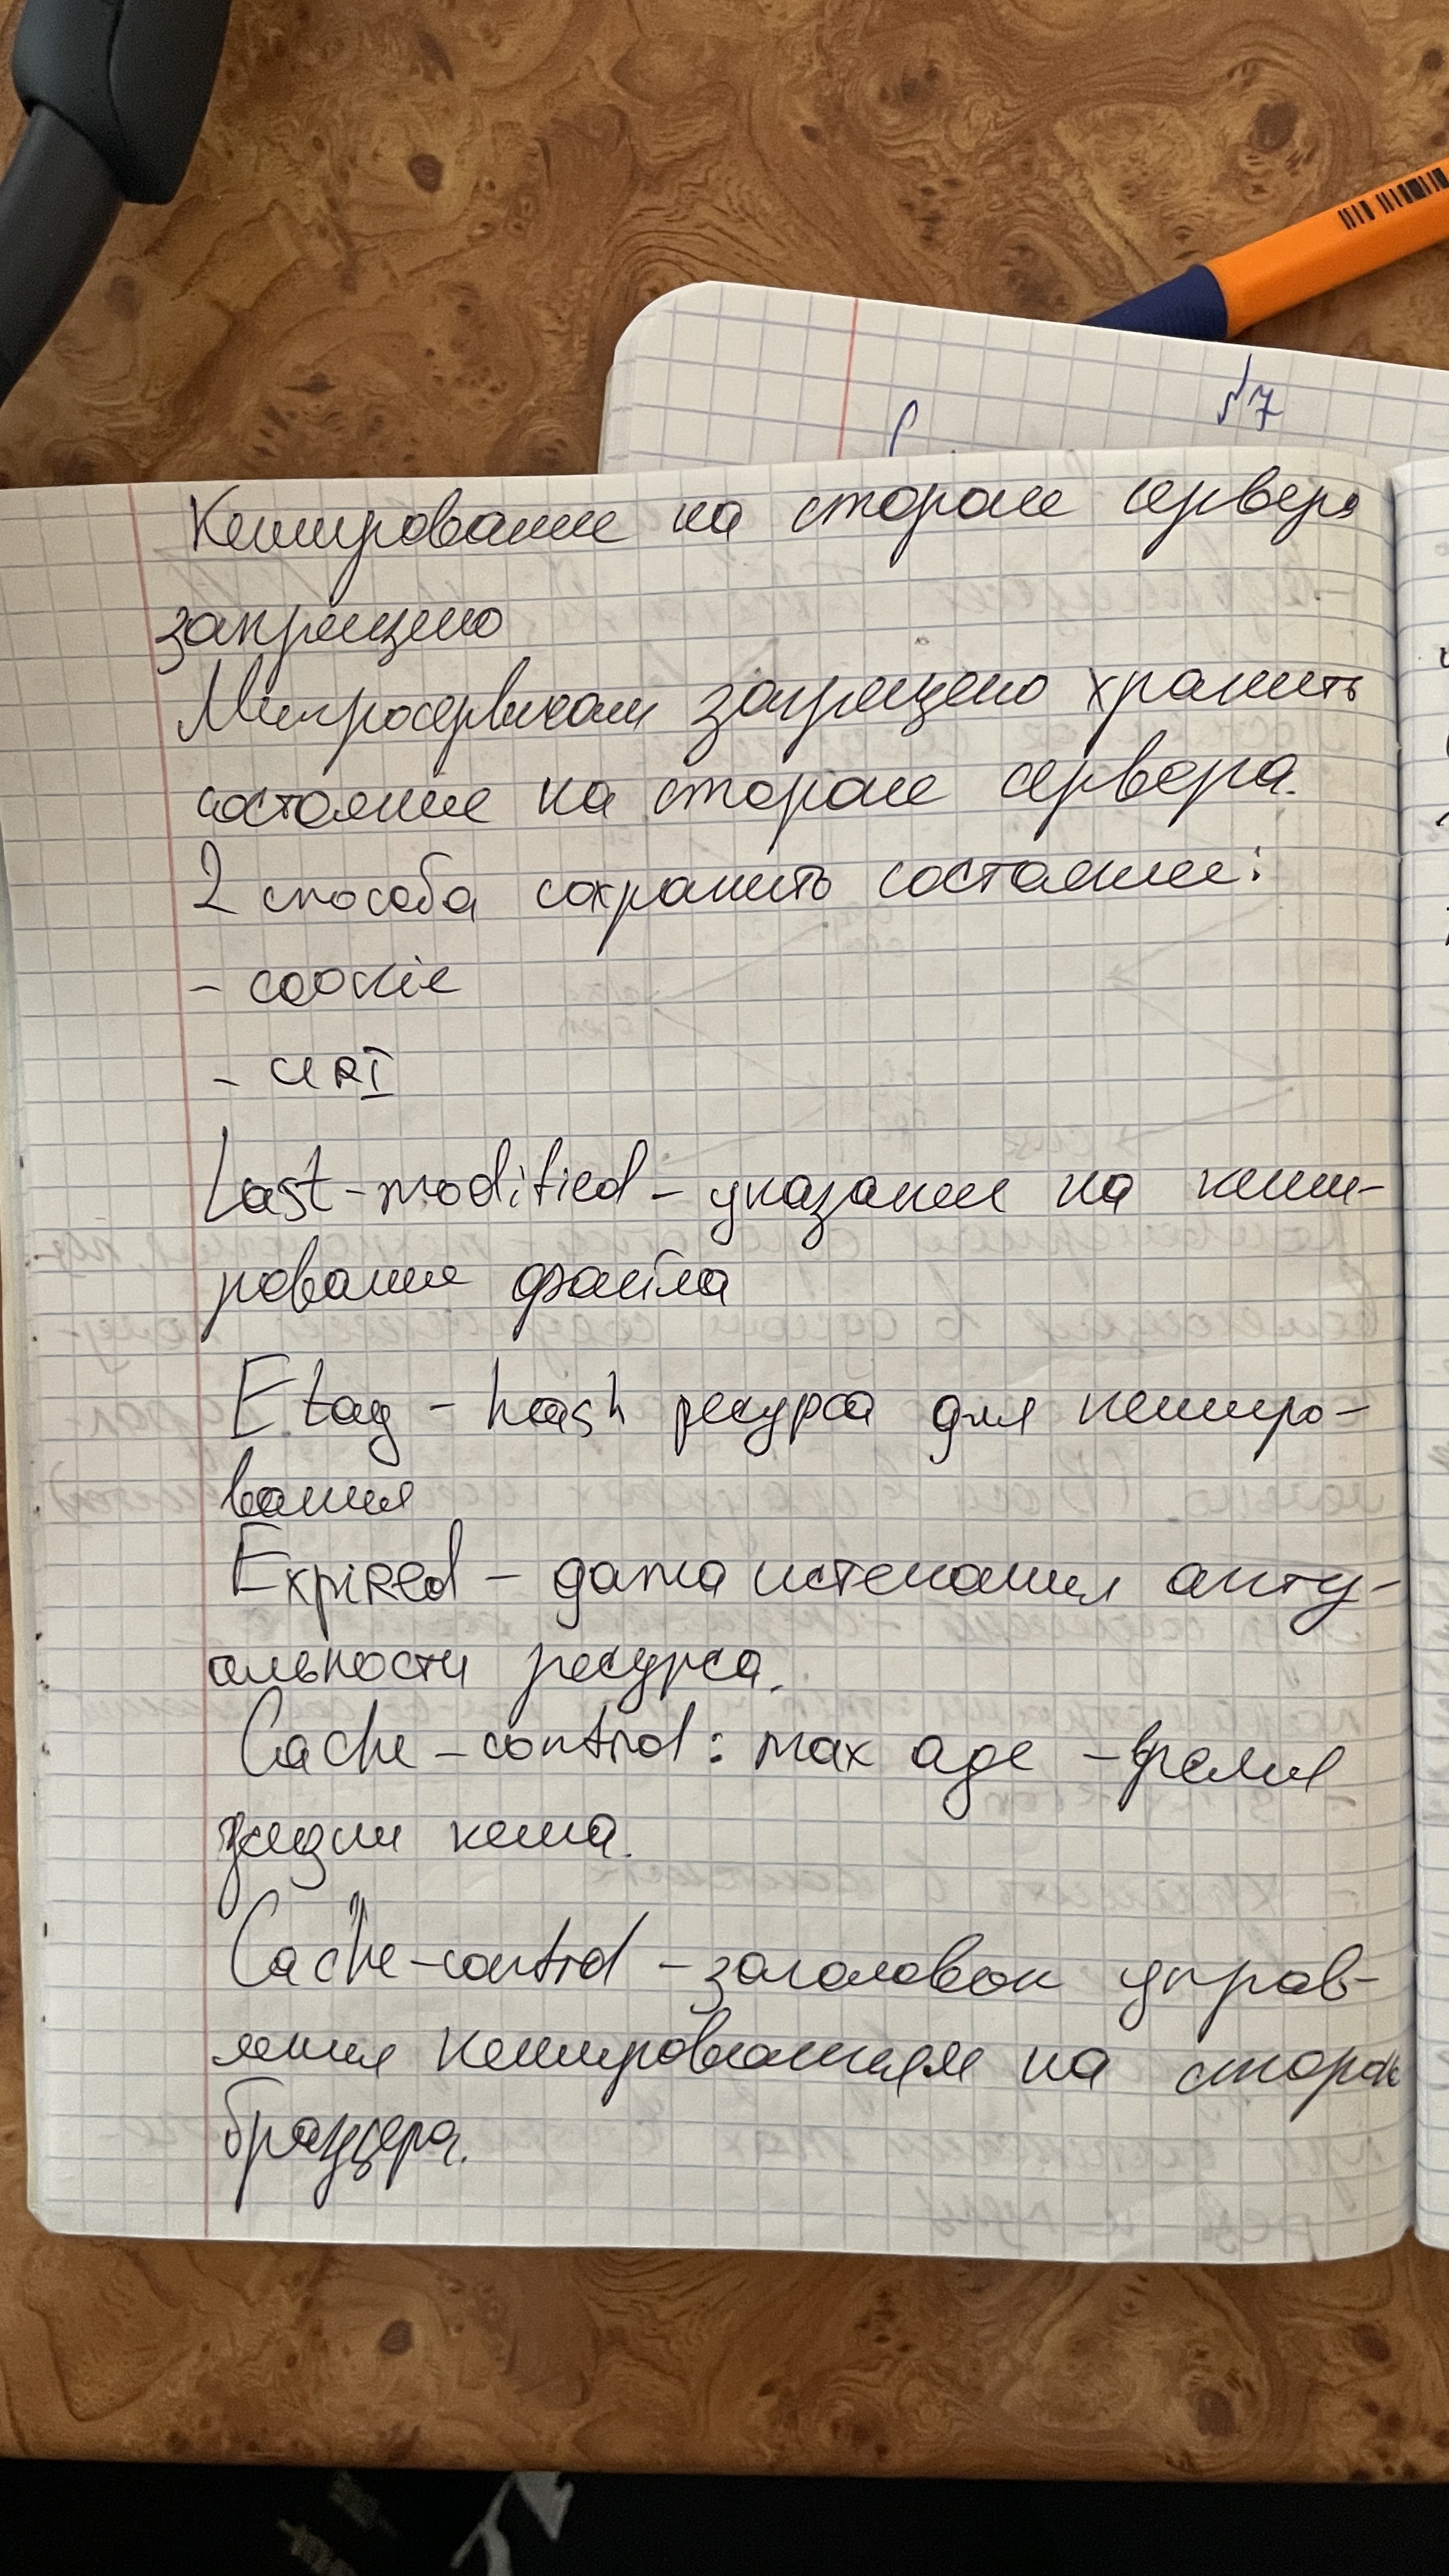 №7
Кеширование на стороне сервера
запрещено
Микросервисам запрещено хранить
состояние на стороне сервера.
2 способа сохранить состояние:
- cookie
- URI
Last-modified - указание на кеши-
рование файла
Etag - hash ресурса для кеширо-
вания
Expired - дата истекания акту-
альности ресурса.
Cache-control: max age - время
жизни кеша.
Cache-control - заголовок управ-
ления кешированием на стороне
браузера.